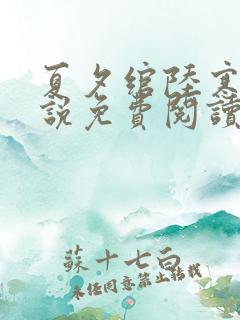 夏夕綰陸寒
說免費閱讀
蘇十七白
未经同意禁止转载